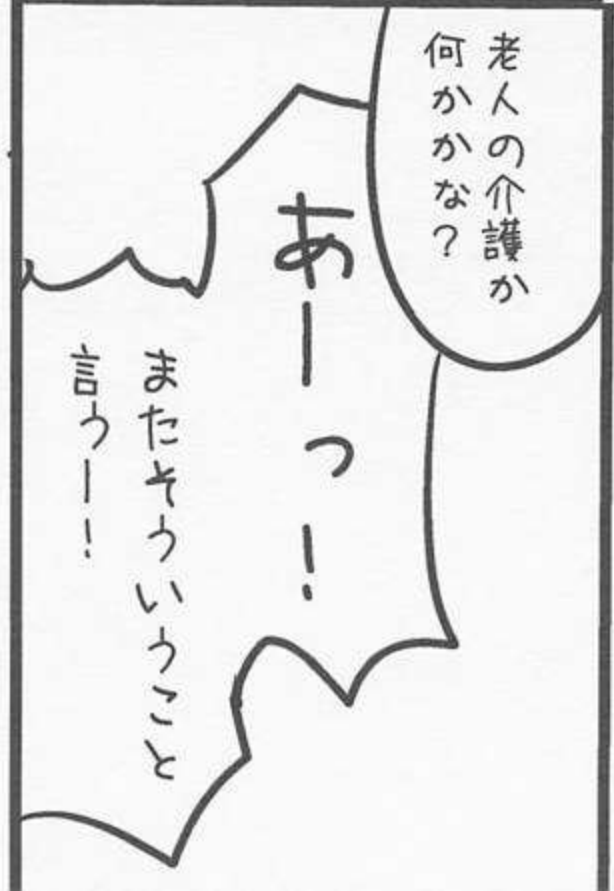 老人の介護か
何かかな?
あーっ!
またそういうこと
言うー!